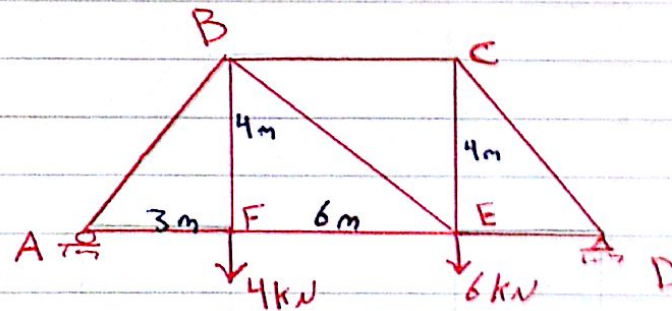 B
C
4m
4m
3m
F
6m
E
A
D
4kN
6kN